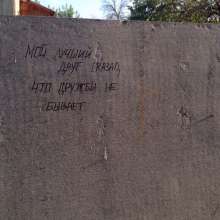 МОЙ ЛУЧШИЙ
ДРУГ СКАЗАЛ,
ЧТО ДРУЖБЫ НЕ
БЫВАЕТ